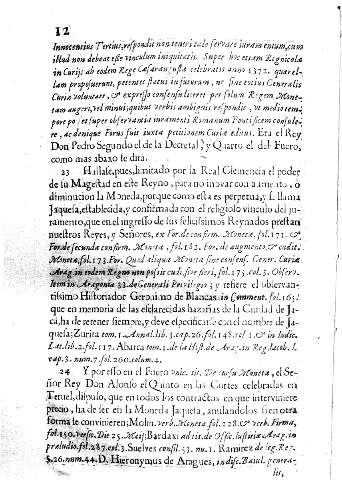 12
Innocentius Tertius, respondit non teneri tale servare iuramentum, cum
illud non debeat esse vinculum iniquitatis. Super hoc etiam Regnicola
in Curijs ab eodem Rege Cæsaraugustæ celebratis anno 1372. querel-
lam proposuerunt, petentes statui in futurum, ne sine totius Generalis
Curiæ voluntate, & expresso consensu liceret per solum Regem Mone-
tam augeri, vel minui; quibus verbis ambiguis respondit, ut medio tem-
pore posset super observantia iuramenti Romanum Pontificem consule-
re, ac denique Forus fuit iuxta petitionem Curiæ editus. Era el Rey
Don Pedro Segundo el de la Decretal, y Quarto el del Fuero,
como mas abaxo se dirà.
23 Hallase, pues, limitado por la Real Clemencia el poder
de su Magestad en este Reyno, para no inovar con aumento, ò
diminucion la Moneda, porque como esta es perpetua, y se llama
Jaquesa, establecida, y confirmada con el religioso vinculo del ju-
ramento, que en el ingresso de sus felicissimos Reynados prestan
nuestros Reyes, y Señores, ex For. de confirm. Monetæ, fol. 171. &
For. de secunda confirm. Monetæ, fol. 182. For. de augmento, & cudit.
Monetæ, fol. 173. For. Quod aliqua Moneta sine consens. Gener. Curiæ
Arag. in eodem Regno non possit cudi, sive fieri, fol. 173. col. 3. Observ.
Item in Aragonia 33. de Generali Privilegio; y refiere el observan-
tissimo Historiador Geronimo de Blancas, in Comment. fol. 163.
que en memoria de las esclarecidas hazañas de la Ciudad de Ja-
ca, ha de retener siempre, y deve especificarse con el nombre de Ja-
quesa; Zurita tom. 1. Annal. lib. 3. cap. 26. fol. 148. col. 1. & in Indic.
Lat. lib. 2. fol. 117. Abarca tom. 1. de la Hist. de Arag. in Reg. Iacob. I.
cap. 3. num. 7. fol. 260. colum. 4.
24 Y por esso en el Fuero unic. tit. De cursu Monetæ, el Se-
ñor Rey Don Alonso el Quinto en las Cortes celebradas en
Teruel, dispuso, que en todos los contractos en que interviniere
precio, ha de ser en la Moneda Jaquesa, anulandolos si en otra
forma le convinieren; Molin. verb. Moneta fol. 228. & verb. Firma,
fol. 150. versic. Die 25. Maij; Bardaxi ad tit. de Offic. Iustitiæ Arag. in
præludio, fol. 287. col. 3. Suelves consil. 53. nu. 1. Ramirez de leg. Reg.
§. 26. num. 44. D. Hieronymus de Aragues, in disc. Baiul. genera-
lis,